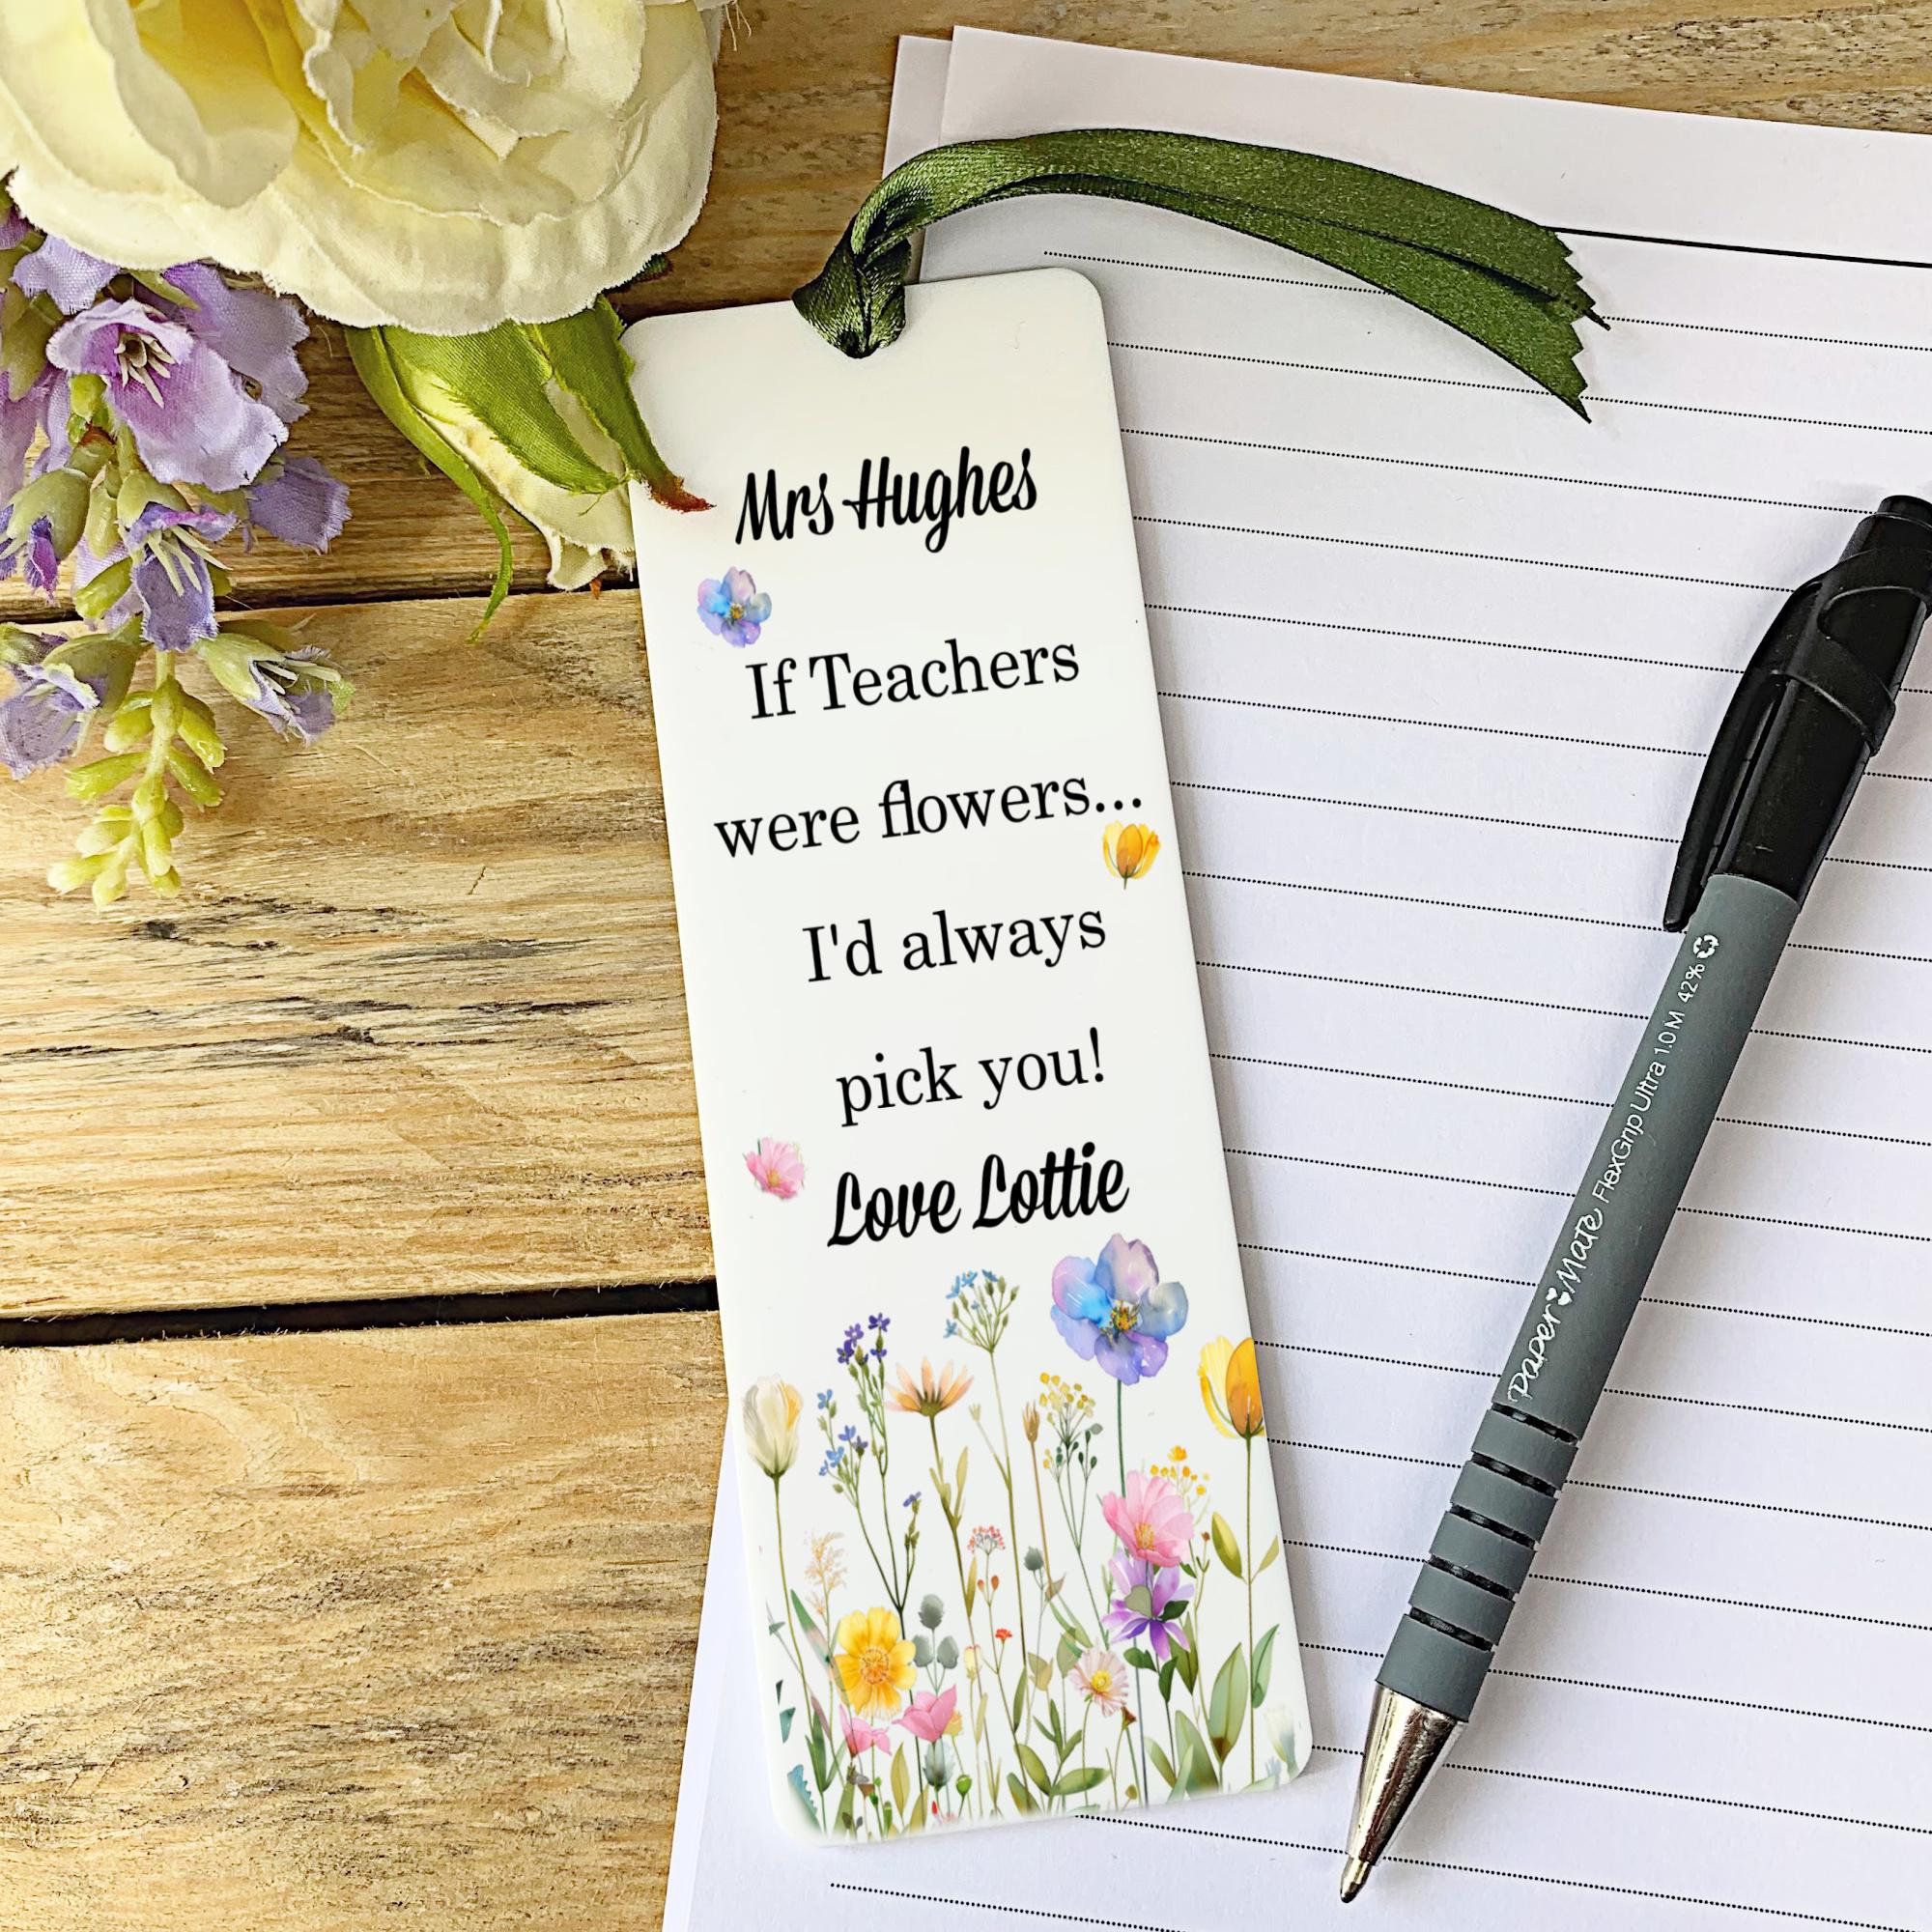 Mrs Hughes
If Teachers
were flowers...
I'd always
pick you!
Love Lottie
Paper Mate FlexGrip Ultra 1.0 M 42%